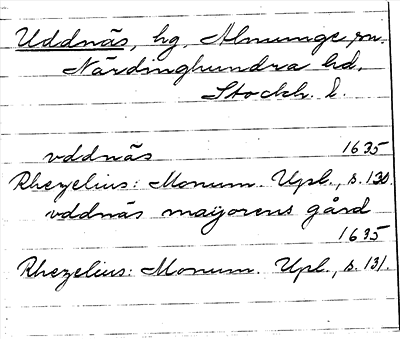 Uddnäs, hg, Almunge sn.
Närdinghundra hd,
Stockh. l.
vddnäs 1635
Rhezelius: Monum. Upl., s. 130.
vddnäs maijorens gård
1635
Rhezelius: Monum. Upl., s. 131.